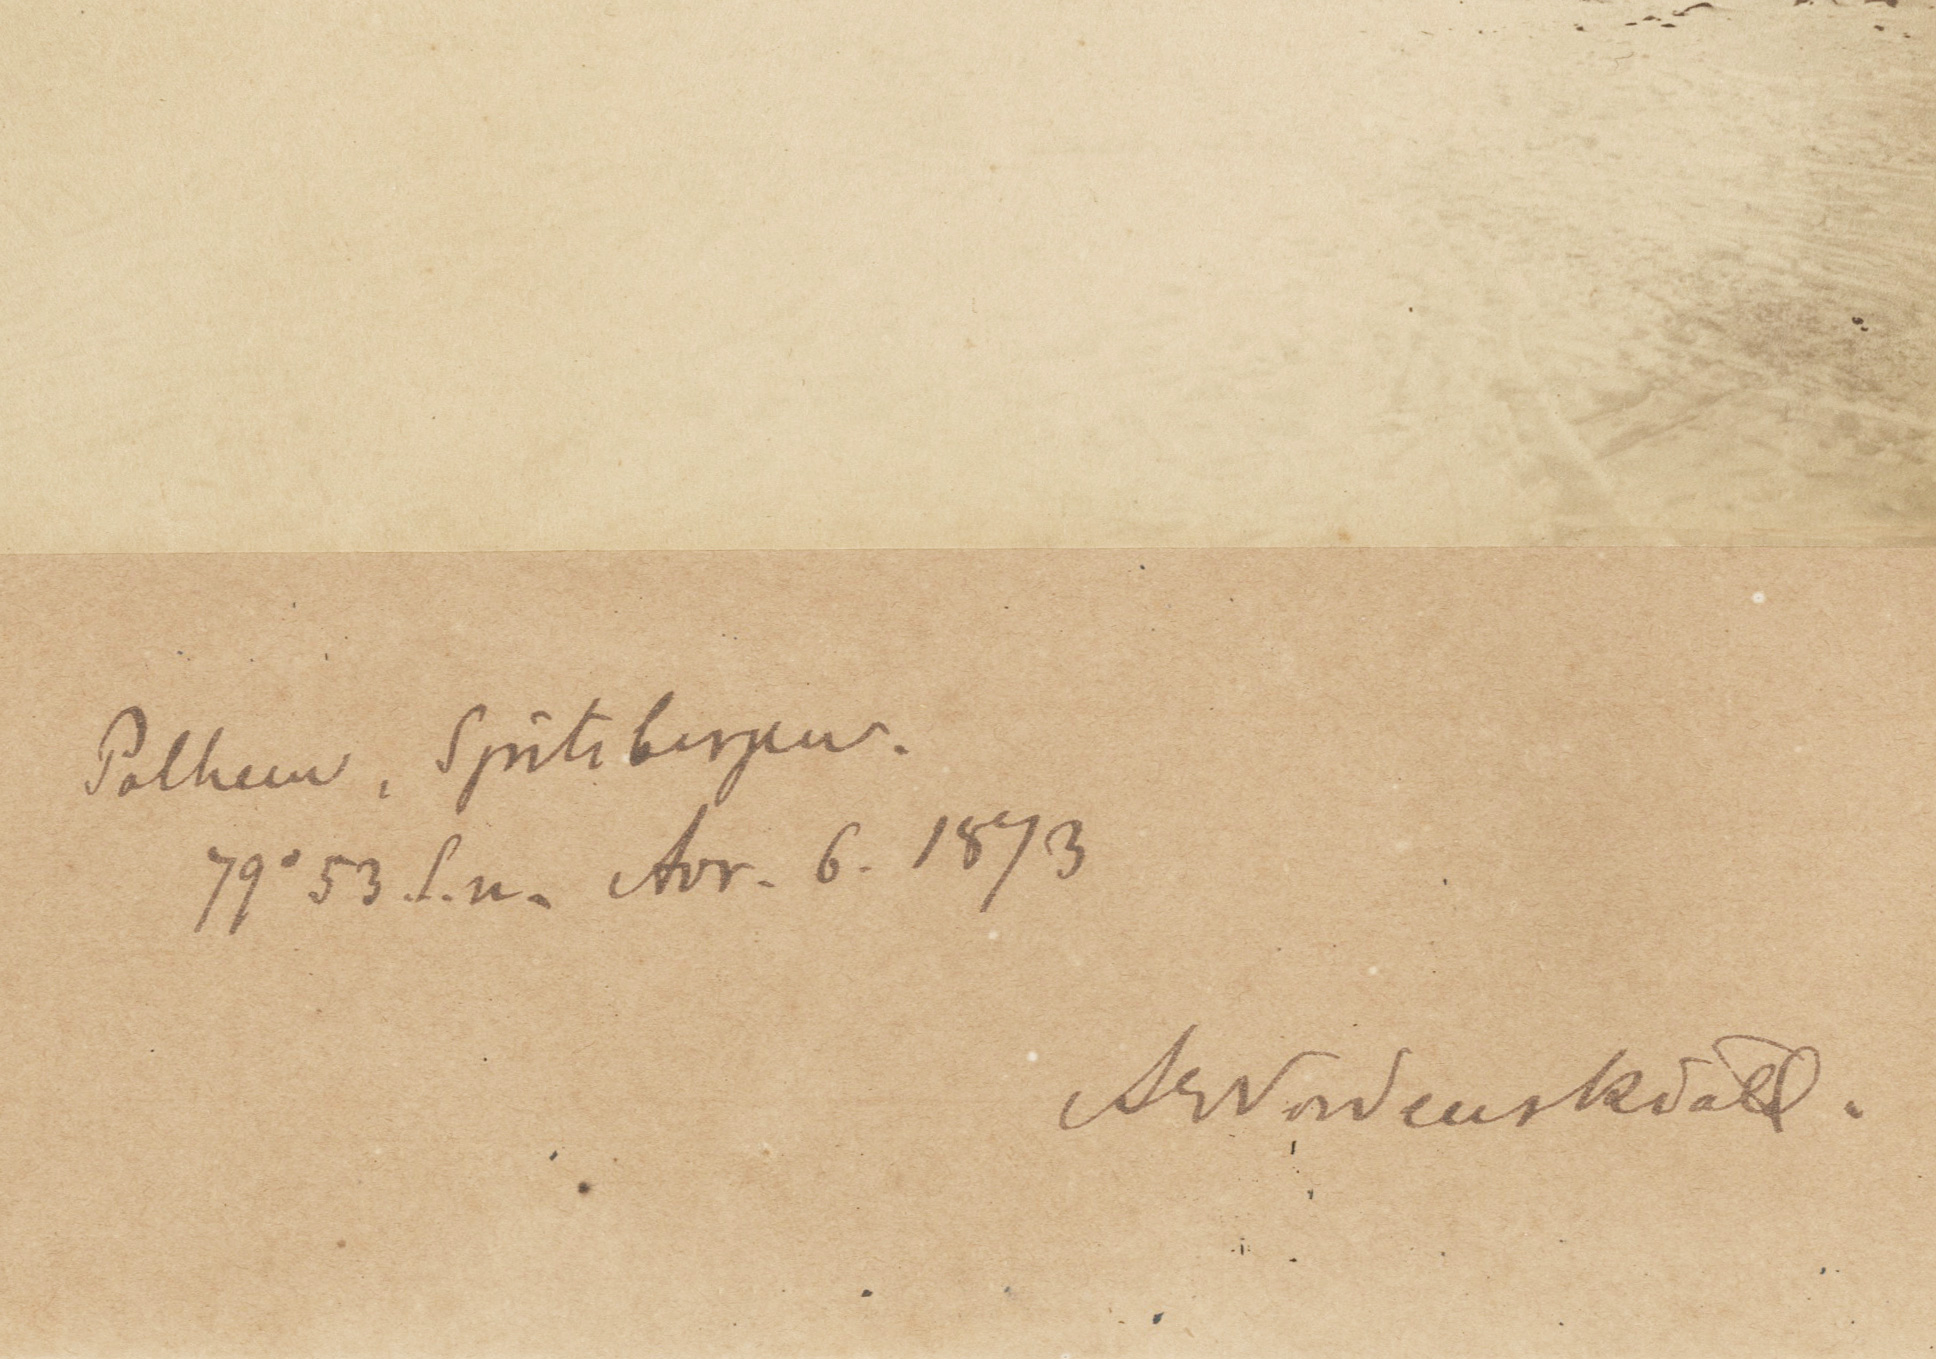 Polhem, Spitsbergen.
79° 53 l.n. Avr. 6. 1873
AENordenskiöld.